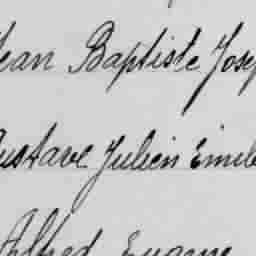 Jean Baptiste Josep
Gustave Julien Emile
Alfred Eugene